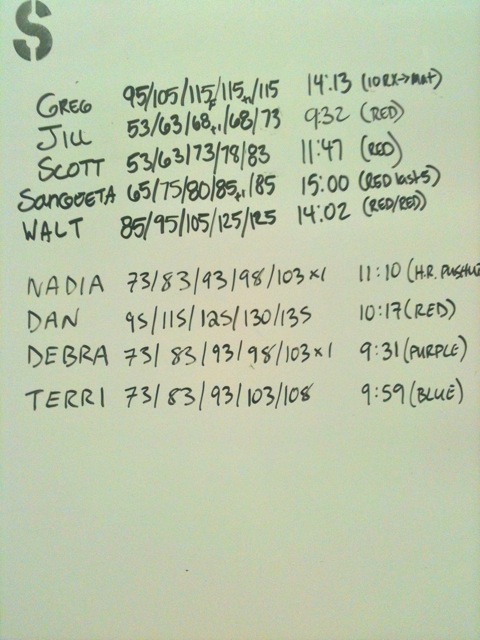 S
GREG 95/105/115F/115+1/115 14:13 (10RX→MAT)
JILL 53/63/68+1/68/73 9:32 (RED)
SCOTT 53/63/73/78/83 11:47 (RED)
SANGUETA 65/75/80/85+1/85 15:00 (RED last 5)
WALT 85/95/105/125/125 14:02 (RED/RED)
NADIA 73/83/93/98/103x1 11:10 (H.R. PUSHUP
DAN 95/115/125/130/135 10:17 (RED)
DEBRA 73/83/93/98/103x1 9:31 (PURPLE)
TERRI 73/83/93/103/108 9:59 (BLUE)